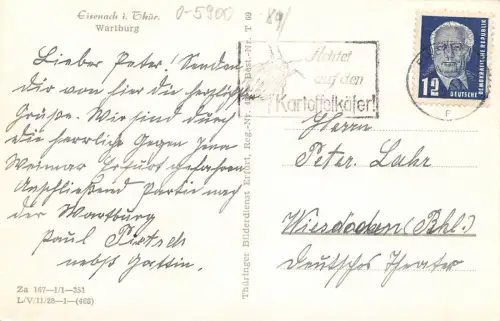 Eisenach i. Thür.
Wartburg
0-5900
Lieber Peter! Senden
dir von hier die herzlichst
Grüße. Wir sind durch
die herrliche Gegen Jena
Weimar Erfurt gefahren
Anschließend Partie nach
der Wartburg
Paul
nebst Gattin.
Za 167-1/1-351
L/V/11/28-1-(468)
Thüringer Bilderdienst Erfurt, Reg.-Nr. Best.-Nr. T 69
Achtet
auf den
Kartoffelkäfer!
DEUTSCHE DEMOKRATISCHE REPUBLIK
Herrn
Peter Lahr
Wiesbaden (Bhl.)
Deutsches Theater